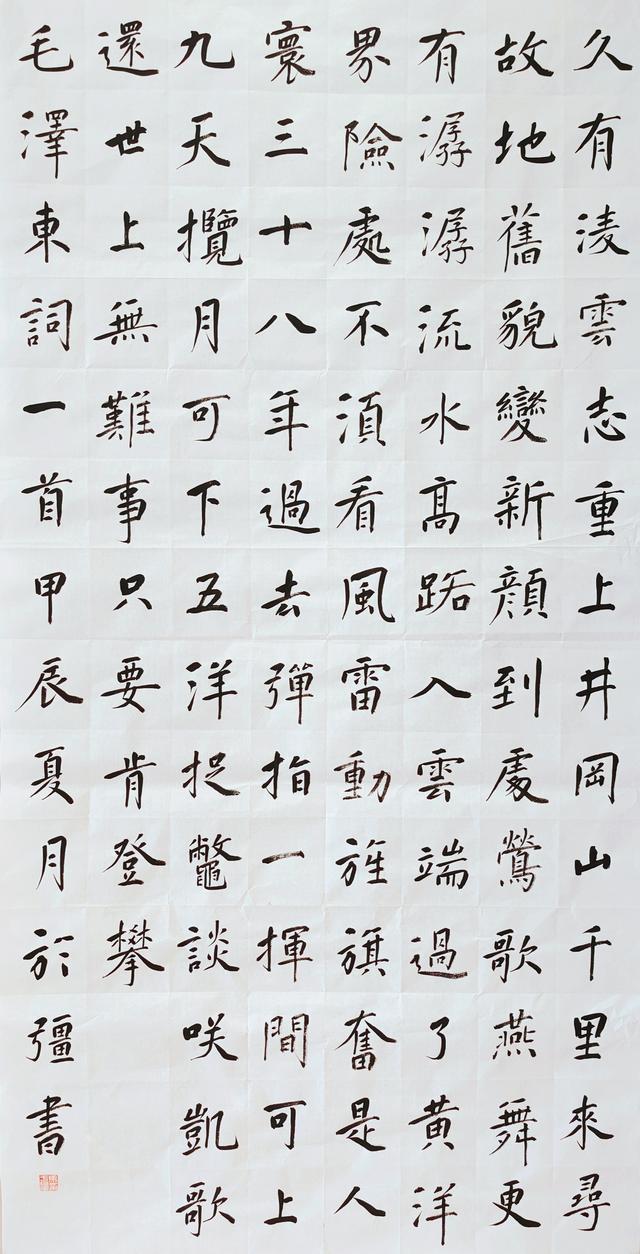 久有淩雲志重上井岡山千里來尋
故地舊貌變新顔到處鶯歌燕舞更
有潺潺流水高路入雲端過了黄洋
界險處不須看風雷動旌旗奮是人
寰三十八年過去彈指一揮間可上
九天攬月可下五洋捉鼈談咲凱歌
還世上無難事只要肯登攀
毛澤東詞一首甲辰夏月於彊書